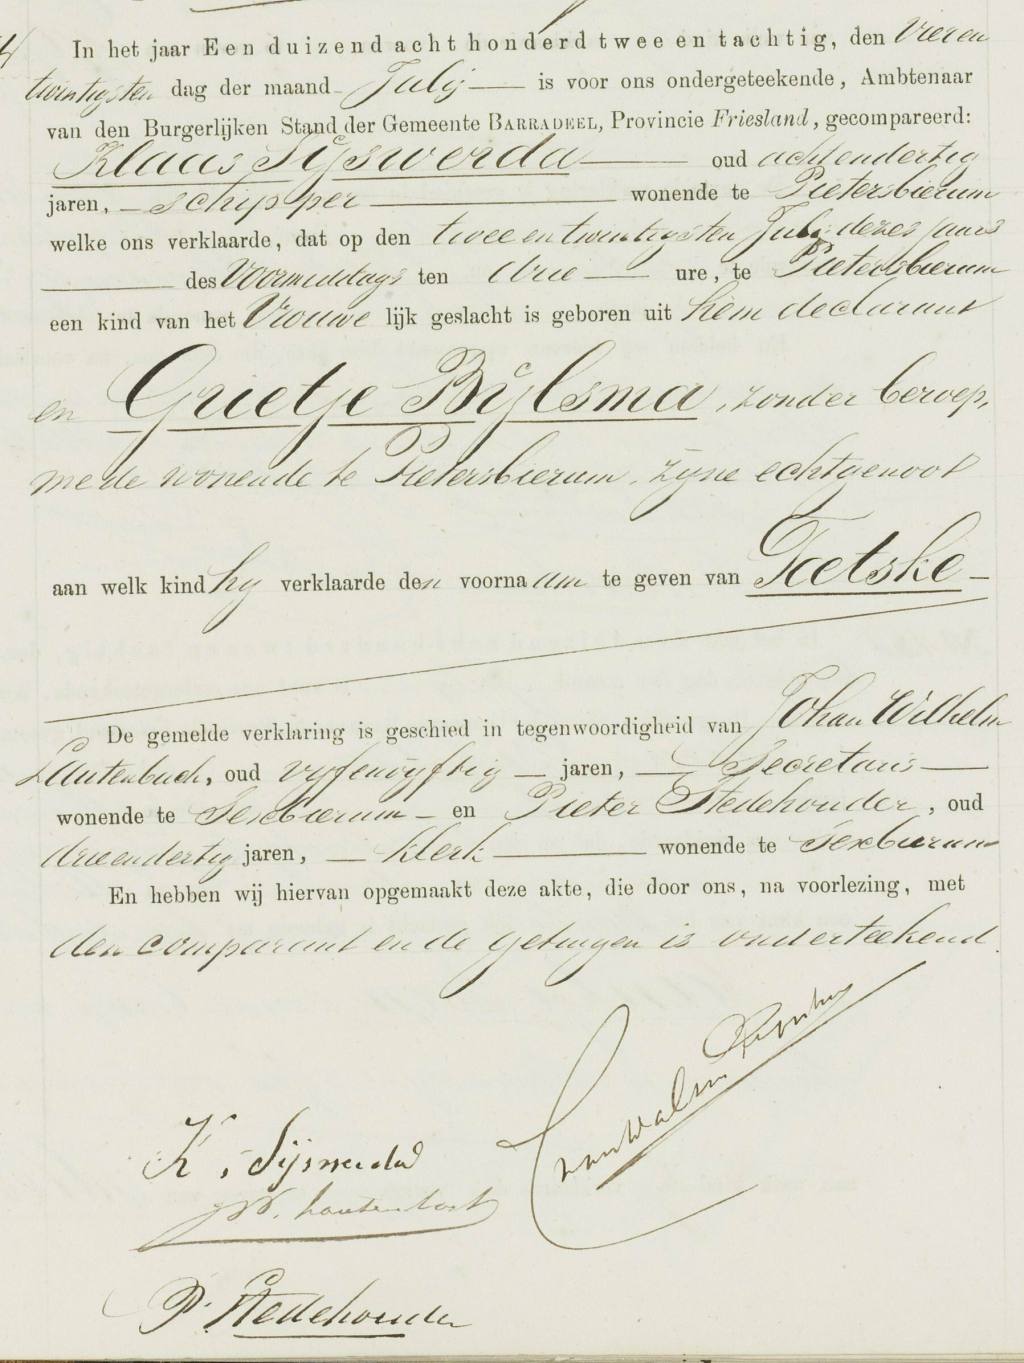 In het jaar Een duizend acht honderd twee en tachtig, den Vier en
twintigsten dag der maand Julij — is voor ons ondergeteekende, Ambtenaar
van den Burgerlijken Stand der Gemeente BARRADEEL, Provincie Friesland, gecompareerd:
Klaas Sijswerda — oud achtendertig
jaren, — schipper — wonende te Pietersbierum
welke ons verklaarde, dat op den twee en twintigsten Julij dezes jaars
— des Voormiddags ten drie — ure, te Pietersbierum
een kind van het Vrouwe lijk geslacht is geboren uit hem declarant
en Grietje Bijlsma, zonder beroep,
mede wonende te Pietersbierum, zijne echtgenoot
aan welk kind hij verklaarde den voornaam te geven van Teetske —
De gemelde verklaring is geschied in tegenwoordigheid van Johan Wilhelm
Lautenbach, oud vijfenvijftig — jaren, — Secretaris —
wonende te Sexbierum — en Pieter Stedehouder, oud
drieendertig jaren, — klerk — wonende te Sexbierum
En hebben wij hiervan opgemaakt deze akte, die door ons, na voorlezing, met
den comparant en de getuigen is onderteekend.
K. Sijswerda
JW. Lautenbach
P. Stedehouder